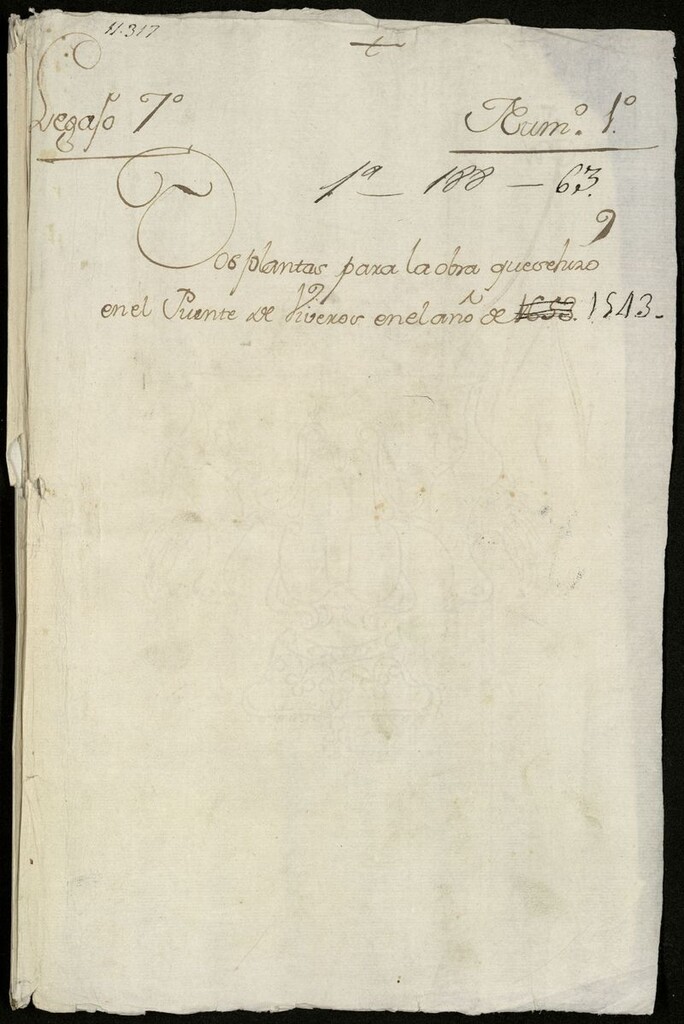 11.317
Legajo 7º
Numº. 1º.
1ª — 188 — 63.
Dos plantas para la obra que se hizo
en el Puente de Viveros en el año de 1658. 1543.